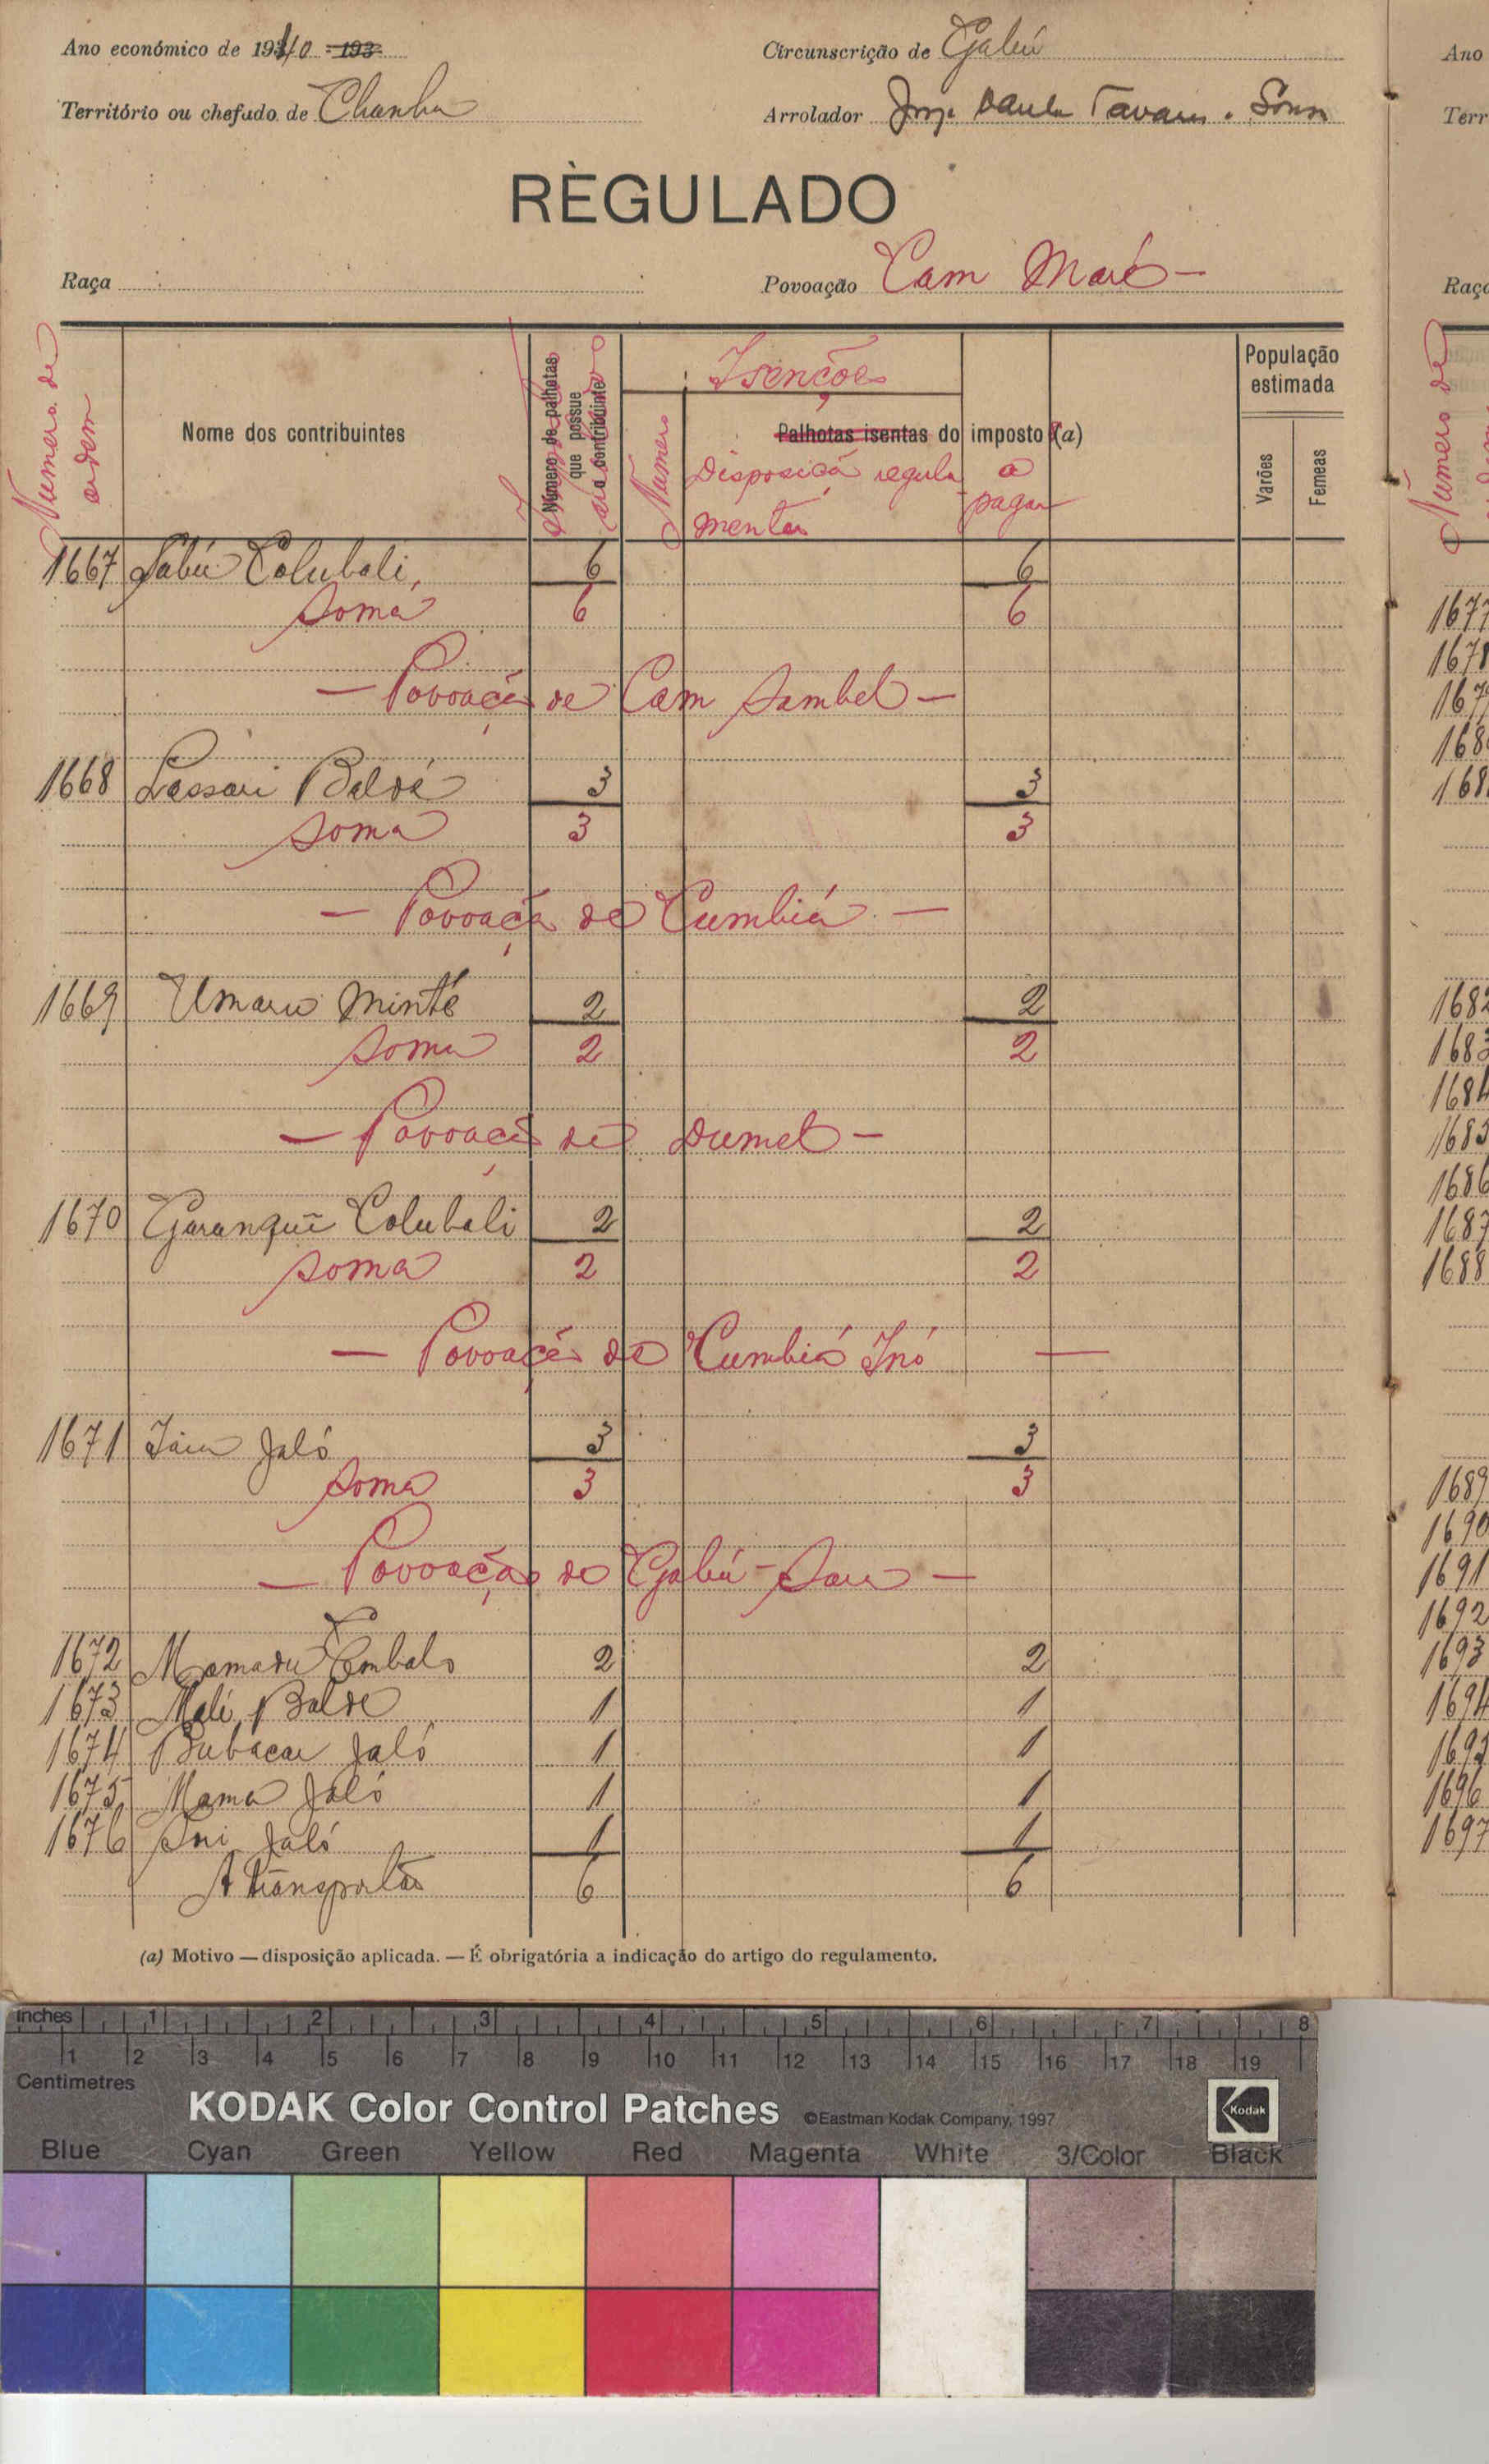 Ano económico de 1940 193
Circunscrição de Gabú
Território ou chefado de Chanha
Arrolador Jorge Paula Tavares e Sousa
RÈGULADO
Raça
Povoação Cam Maré —
Numero de ordem
Nome dos contribuintes
Número de palhotas que possue o contribuinte
Isenções
Numero
Palhotas isentas do imposto (a)
Disposiçã regula mentar
a pagar
População estimada
Varões
Femeas
1667 Sabú Colubali, 6 6
Soma 6 6
— Povoação de Cam Sambel —
1668 Lassari Baldé 3 3
Soma 3 3
— Povoação de Cumbiá —
1669 Umaru Minté 2 2
Soma 2 2
— Povoação de Dumel —
1670 Garanqui Colubali 2 2
Soma 2 2
— Povoação de Cumbiá Inó —
1671 Jaló 3 3
Soma 3 3
— Povoação de Gabú-Sare —
1672 Mamadu Embalo 2 2
1673 Mali Balde 1 1
1674 Bubacar Jaló 1 1
1675 Mama Jaló 1 1
1676 Sori Jaló 1 1
A transportar 6 6
(a) Motivo — disposição aplicada. — É obrigatória a indicação do artigo do regulamento.
Ano
Terr
Raça
Número de
1677
1678
1679
168
168
1682
1683
1684
1685
1686
1687
1688
1689
1690
1691
1692
1693
1694
1695
1696
1697
Inches 1 2 3 4 5 6 7 8
1 2 3 4 5 6 7 8 9 10 11 12 13 14 15 16 17 18 19
Centimetres
KODAK Color Control Patches ©Eastman Kodak Company, 1997 Kodak
Blue Cyan Green Yellow Red Magenta White 3/Color Black